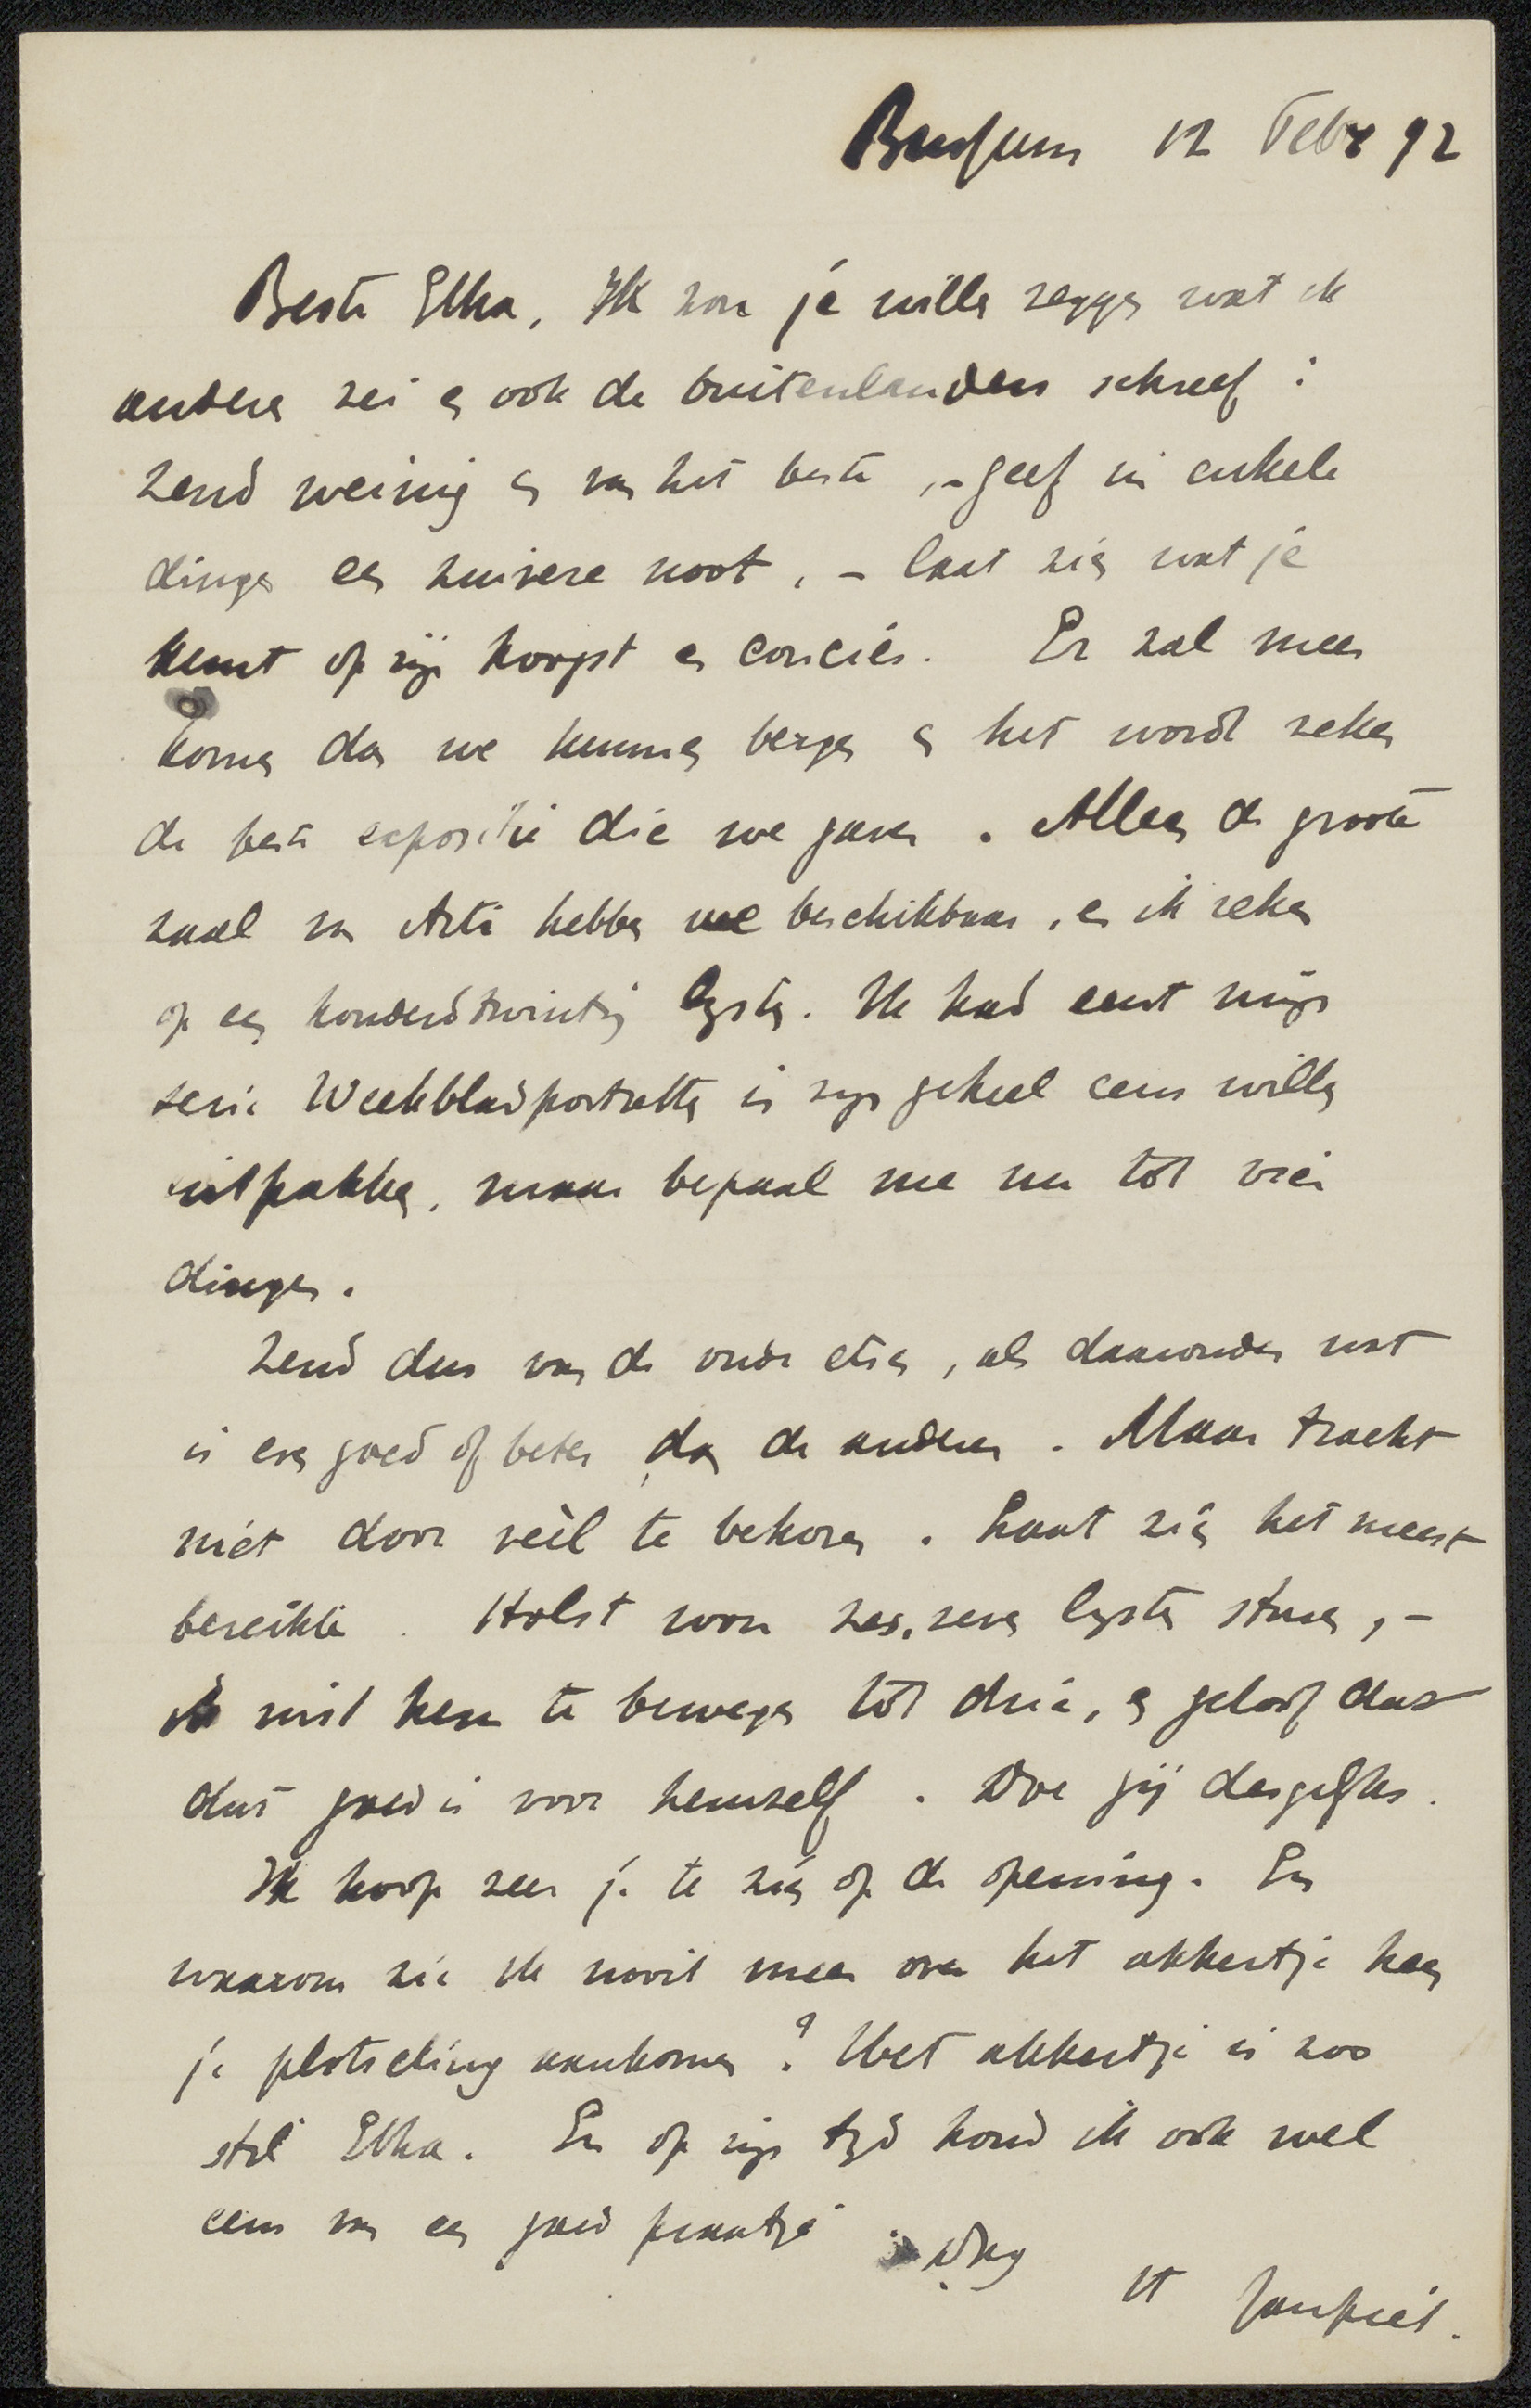 Bussum 12 Febr 92
Beste Elka, Ik zou je willen zeggen wat ik
anderen zei en ook de buitenlanders schreef:
zend weinig en van het beste, – geef in enkele
dingen een zuivere noot, – laat zien wat je
kunt op zijn hoogst en concies. Er zal meer
komen dan we kunnen bergen en het wordt zeker
de beste expositie die we gaven. Alleen de groote
zaal van Arti hebben we beschikbaar, en ik reken
op een honderdtwintig lysten. Ik had eerst mijn
serie Weekbladportretten in zijn geheel eens willen
uitpakken, maar bepaal me nu tot vier
dingen.
Zend dus van de oude etsen, als daaronder wat
is even goed of beter dan de anderen. Maar tracht
niet door véél te bekoren. Laat zien het meest
bereikte. Holst wou zes, zeven lysten sturen, –
ik wist hem te bewegen tot drie, en geloof dat
dat goed is voor hemzelf. Doe jij desgelyks.
Ik hoop zeer je te zien op de opening. En
waarom zie ik nooit meer over het akkertje heen
je plotseling aankomen? Het akkertje is zoo
stil Elka. En op zijn tyd houd ik ook wel
eens van een goed praatje. Dag
tt Janpiet.